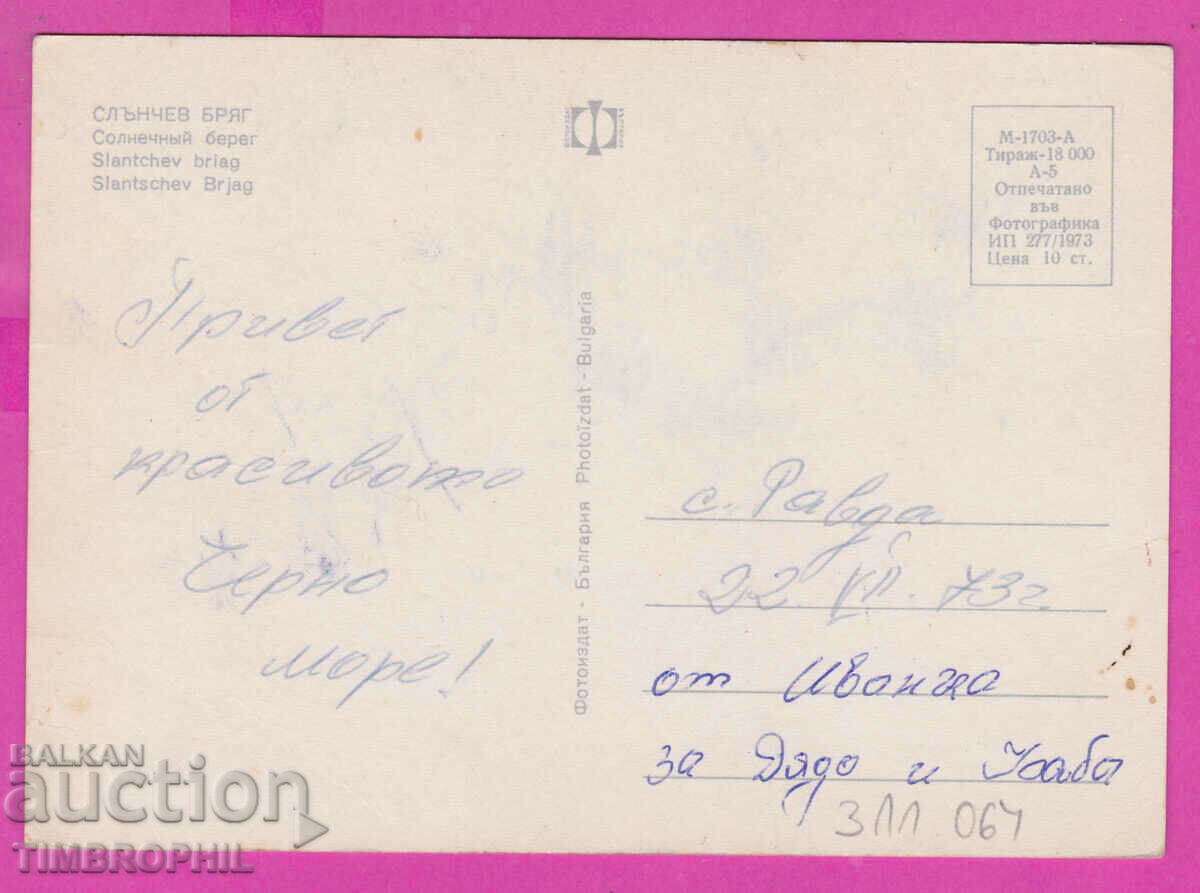 СЛЪНЧЕВ БРЯГ
Солнечный берег
Slantchev briag
Slantschev Brjag
ФОТОИЗДАТ
БЪЛГАРИЯ
М-1703-А
Тираж-18 000
А-5
Отпечатано
във
Фотографика
ИП 277/1973
Цена 10 ст.
Привет
от
красивото
Черно
море!
Фотоиздат - България Photoïzdat - Bulgaria
с. Равда
22. VII. 73 г.
от Иванча
за Дядо и
ЗЛЛ 064
BALKAN
auction
TIMBROPHIL